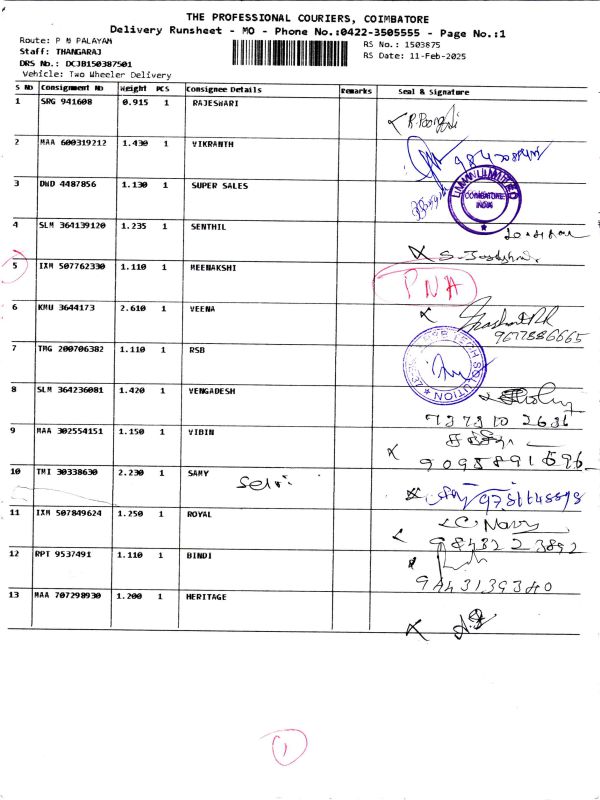 THE PROFESSIONAL COURIERS, COIMBATORE
Delivery Runsheet - MO - Phone No.:0422-3505555 - Page No.:1
Route: P N PALAYAM
RS No.: 1503875
Staff: THANGARAJ
RS Date: 11-Feb-2025
DRS No.: DCJB150387501
Vehicle: Two Wheeler Delivery
S No Consignment No Weight PCS Consignee Details Remarks Seal & Signature
1 SRG 941608 0.915 1 RAJESWARI
2 MAA 600319212 1.430 1 VIKRANTH
3 DWD 4487856 1.130 1 SUPER SALES
COIMBATORE
INDIA
4 SLM 364139120 1.235 1 SENTHIL
5 IXM 507762330 1.110 1 MEENAKSHI PNA
6 KMU 3644173 2.610 1 VEENA
9677886665
7 TMG 200706382 1.110 1 RSB
8 SLM 364236081 1.420 1 VENGADESH
7373102636
9 MAA 302554151 1.150 1 VIBIN
9095891596
10 TMI 30338630 2.230 1 SAMY
Selvi
11 IXM 507849624 1.250 1 ROYAL
9843223892
12 RPT 9537491 1.110 1 BINDI
9443139340
13 MAA 707298930 1.200 1 HERITAGE
1